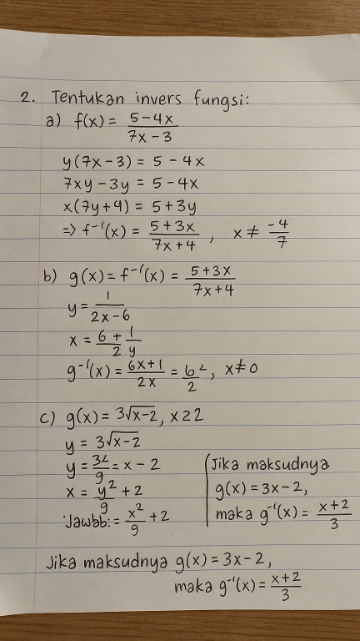 2. Tentukan invers fungsi:
a) f(x) = (5-4x)/(7x-3)
y(7x-3) = 5-4x
7xy-3y = 5-4x
x(7y+4) = 5+3y
=> f⁻¹(x) = (5+3x)/(7x+4) , x ≠ -4/7
b) g(x) = f⁻¹(x) = (5+3x)/(7x+4)
y = 1/(2x-6)
x = 6/2 + 1/y
g⁻¹(x) = (6x+1)/(2x) = /2, x≠0
c) g(x) = 3√(x-2), x≥2
y = 3√(x-2)
y = /9 = x-2
x = y²/9 + 2
Jawab: = x²/9 + 2
Jika maksudnya
g(x) = 3x-2,
maka g⁻¹(x) = (x+2)/3
Jika maksudnya g(x) = 3x-2,
maka g⁻¹(x) = (x+2)/3